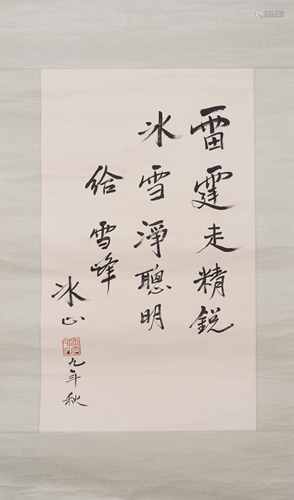 雷霆走精銳
冰雪淨聰明
給雪峰
冰心
九年秋